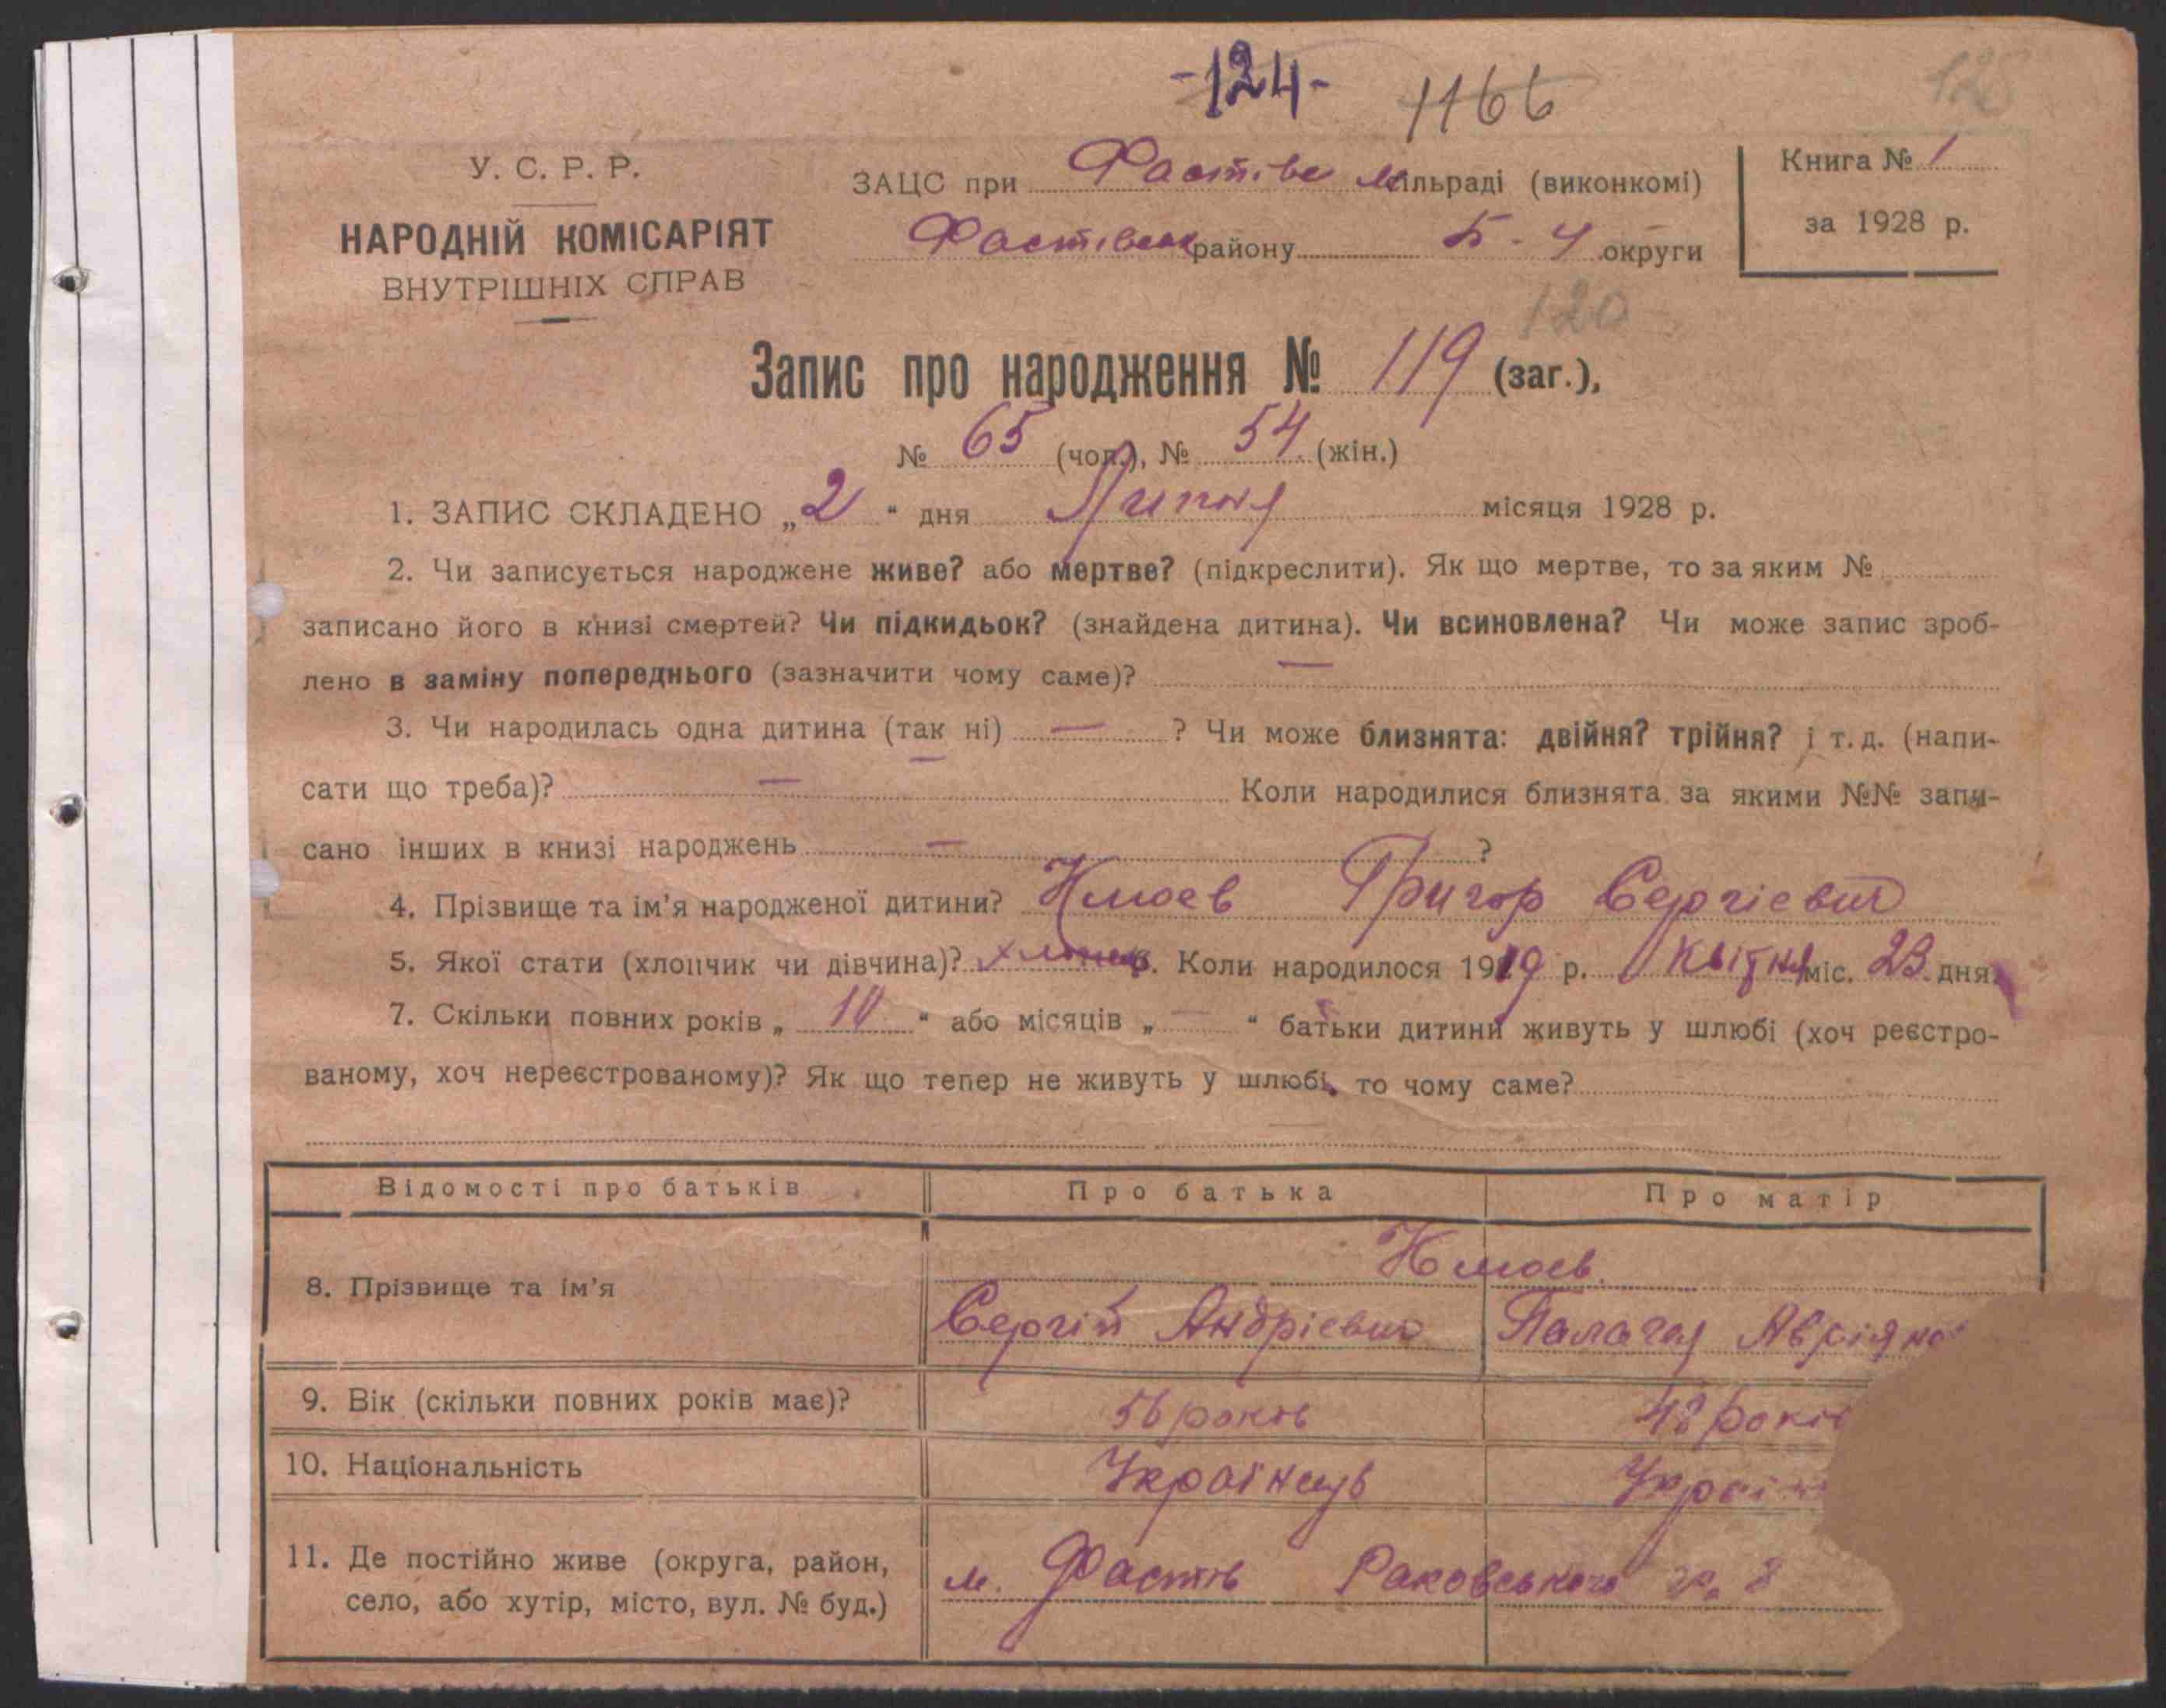 -124- 1166 128
У. С. Р. Р.
НАРОДНІЙ КОМІСАРІЯТ
ВНУТРІШНІХ СПРАВ
ЗАЦС при Фастівс м ільраді (виконкомі)
Фастівськ району Б-Ц округи
Книга № 1
за 1928 р.
120
Запис про народження № 119 (заг.),
№ 65 (чол.), № 54. (жін.)
1. ЗАПИС СКЛАДЕНО „2“ дня Липня місяця 1928 р.
2. Чи записується народжене живе? або мертве? (підкреслити). Як що мертве, то за яким №
записано його в книзі смертей? Чи підкидьок? (знайдена дитина). Чи всиновлена? Чи може запис зроб-
лено в заміну попереднього (зазначити чому саме)? —
3. Чи народилась одна дитина (так ні) — ? Чи може близнята: двійня? трійня? і т. д. (напи-
сати що треба)? — Коли народилися близнята за якими №№ запи-
сано інших в книзі народжень — ?
4. Прізвище та ім'я народженої дитини? Григор Сергієвич
5. Якої стати (хлопчик чи дівчина)? хлопец. Коли народилося 1919 р. Квітня міс. 23 дня.
7. Скільки повних років „10“ або місяців „—“ батьки дитини живуть у шлюбі (хоч реєстро-
ваному, хоч нереєстрованому)? Як що тепер не живуть у шлюбі, то чому саме?
Відомості про батьків Про батька Про матір
8. Прізвище та ім'я
Сергій Андрієвич Палагая Авріяно
9. Вік (скільки повних років має)? 56 років 48 років
10. Національність Українець Україн
11. Де постійно живе (округа, район,
село, або хутір, місто, вул. № буд.)
м. Фастів Раковського 8